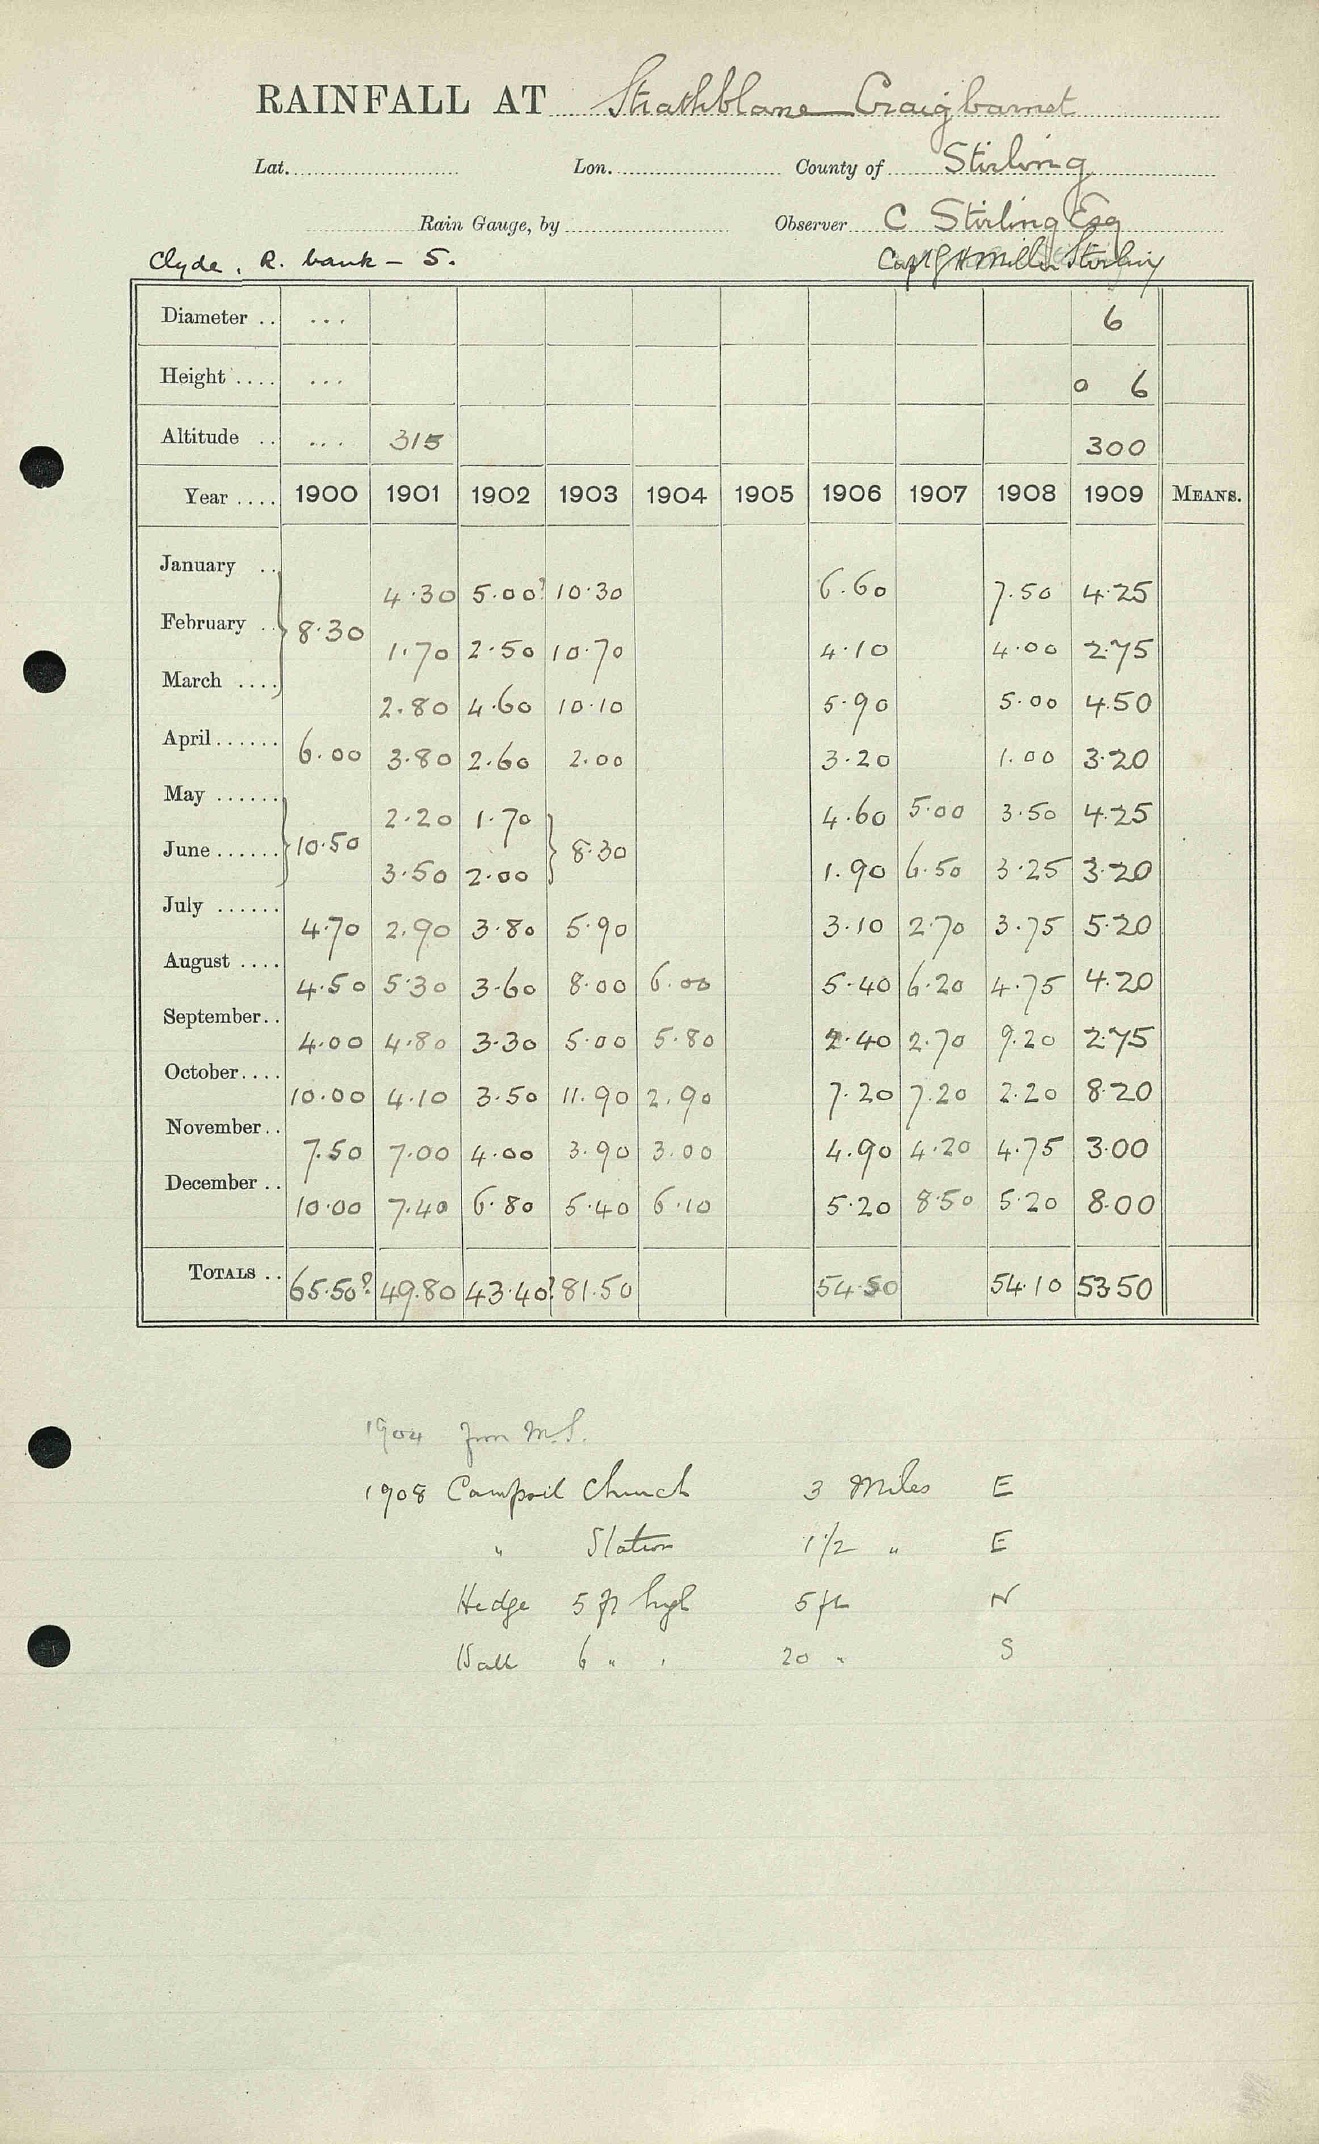 RAINFALL AT Strathblane Craigbarnet
Lat. Lon. County of Stirling
Rain Gauge, by Observer C Stirling Esq
Clyde, R. bank – 5. Stirling
Diameter .. ... 6
Height .... ... 0 6
Altitude .. ... 315 300
Year .... 1900 1901 1902 1903 1904 1905 1906 1907 1908 1909 MEANS.
January .. 4.30 5.00? 10.30 6.60 7.50 4.25
February .. 8.30 1.70 2.50 10.70 4.10 4.00 2.75
March .... 2.80 4.60 10.10 5.90 5.00 4.50
April...... 6.00 3.80 2.60 2.00 3.20 1.00 3.20
May ...... 2.20 1.70 4.60 5.00 3.50 4.25
June...... 10.50 3.50 2.00 8.30 1.90 6.50 3.25 3.20
July ...... 4.70 2.90 3.80 5.90 3.10 2.70 3.75 5.20
August .... 4.50 5.30 3.60 8.00 6.00 5.40 6.20 4.75 4.20
September.. 4.00 4.80 3.30 5.00 5.80 2.40 2.70 9.20 2.75
October.... 10.00 4.10 3.50 11.90 2.90 7.20 7.20 2.20 8.20
November.. 7.50 7.00 4.00 3.90 3.00 4.90 4.20 4.75 3.00
December .. 10.00 7.40 6.80 5.40 6.10 5.20 8.50 5.20 8.00
TOTALS .. 65.50? 49.80 43.40? 81.50 54.50 54.10 53.50
1904 from M.S.
1908 Church 3 Miles E
" Station 1 1/2 " E
Hedge 5 ft high 5 ft N
Wall 6 " " 20 " S